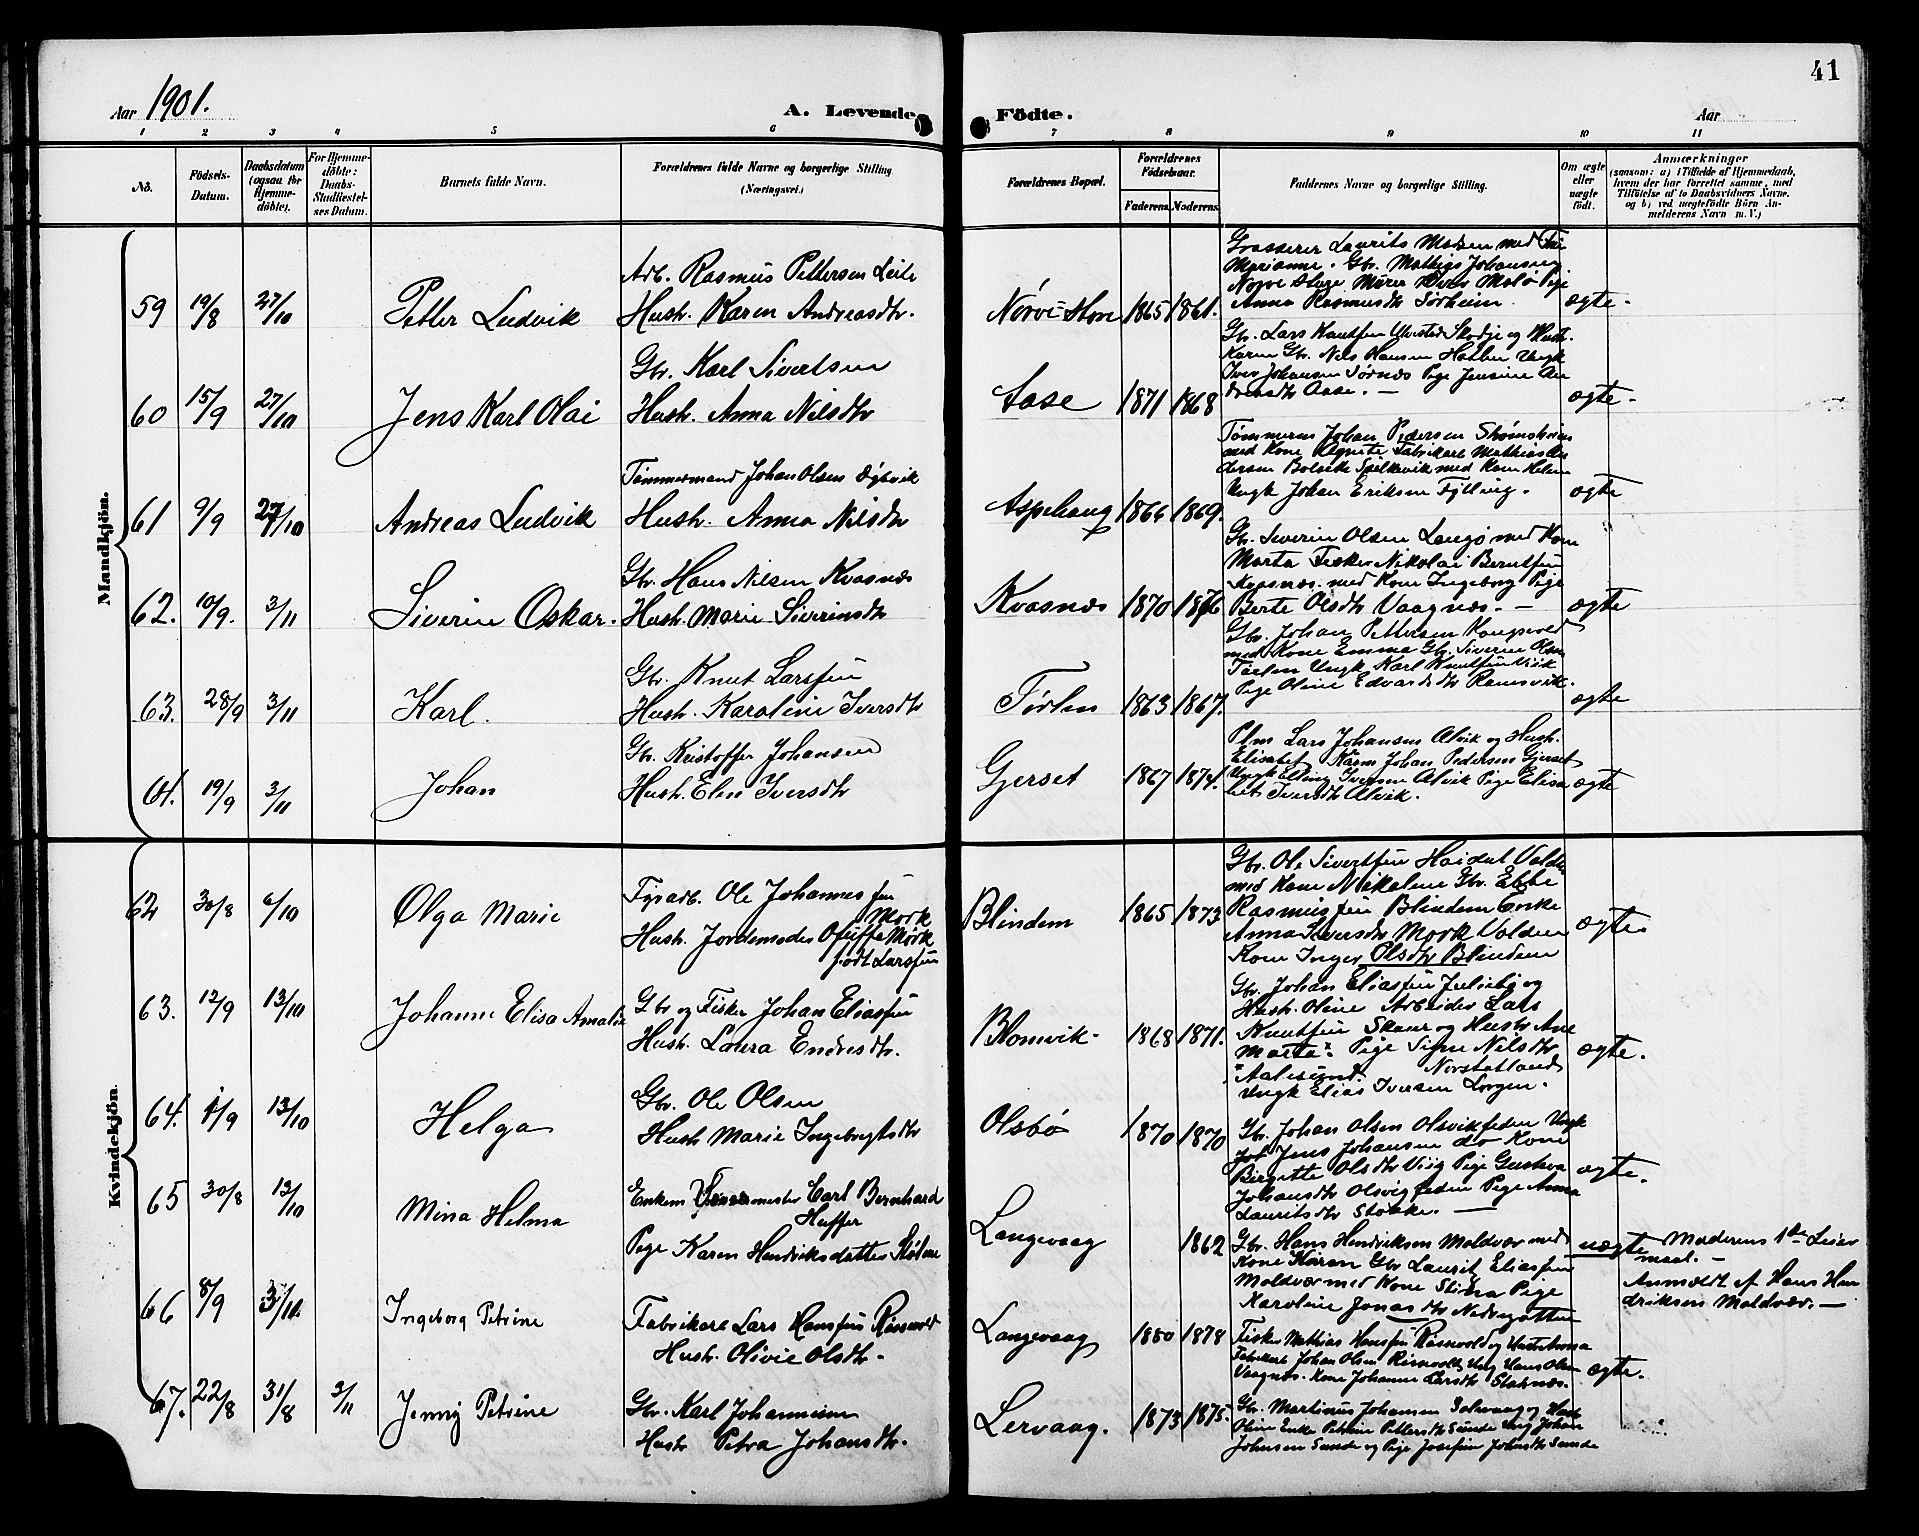 41
Aar 1901.
A. Levende Födte.
Aar
1 2 3 4 5 6 7 8 9 10 11
No.
Födsels-Datum.
Daabsdatum (ogsaa for Hjemme-döbte).
For Hjemme-döbte: Daabs-Stadfæstelses Datum.
Barnets fulde Navn.
Forældrenes fulde Navne og borgerlige Stilling.
(Næringsvei.)
Forældrenes Bopæl.
Forældrenes Födselsaar.
Faderens. Moderens.
Faddernes Navne og borgerlige Stilling.
Om ægte eller uægte födt.
Anmærkninger
(saasom: a) i Tilfælde af Hjemmedaab,
hvem der har forrettet samme, med
Tilföielse af to Daabsvidners Navne.
og b) ved uægtefödte Börn An-
melderens Navn m. V.)
Mandkjön.
59 19/8 27/10 Petter Ludvik
Arb. Rasmus Pettersen Leite
Hustr. Karen Andreasdtr.
Nørve-Stor 1865 1861.
Grosserer Laurits Madsen med Frue
Marianne. Gbr. Mathias Johansen
Anna Rasmusdtr Sørheim. ægte.
60 15/9 27/10 Jens Karl Olai
Gbr. Karl Sivertsen
Hustr. Anna Nilsdtr
Aase 1871 1868
Gbr. Lars Knutsen Ulvestad Skodje og Hustr.
Karen Gbr. Nils Hansen Ungk
Iver Johansen Sørnes Pige Jensine An
dreasdtr Aase. — ægte.
61 9/9 27/10 Andreas Ludvik
Tømmermand Johan Olsen Døsvik
Hustr. Anna Nilsdtr
Aspehaug 1866 1869.
Tømmerm Johan Pedersen Strømsheim
med Kone Fabrikarb Mathias An
dersen Spilkevik med Kone Helene
Ungk Johan Eriksen Fylling. ægte
62. 10/9. 3/11 Siverin Oskar.
Gbr. Hans Nilsen Kvasnes
Hustr. Marie Siverinsdtr
Kvasnes 1870 1876
Gbr. Severin Olsen Langø med Kone
Marta Fisker Nikolai Berntsen
Kvasnes med Kone Ingeborg Pige
Berte Olsdtr Vaagnæs. — ægte
63. 28/9 3/11 Karl.
Gbr. Knut Larssen
Hustr. Karoline Iversdtr
Tørlen 1863 1867.
Gbr. Johan Pettersen Kongsvold
med Kone Emma Gbr. Siverin Olsen
Tørlen Ungk Karl Knutsen Vik
Pige Oline Edvardsdtr Ramsvik. ægte
64. 19/9 3/11 Johan
Gbr. Kristoffer Johansen
Hustr. Elen Iversdtr
Gjerset 1867 1874.
Plm Lars Johansen Alvik og Hustr.
Elisabet Johan Pedersen Gjerset
Ungk Elling Iversen Alvik Pige Elisa
bet Iversdtr Alvik. ægte
Kvindekjön
62 30/8 6/10 Olga Marie
Fyrarb. Ole Johannessen
Mork
Hustr. Jordemoder Mørk
født Larssen
Blindem 1865 1873
Gbr. Ole Sivertsen Haidal Valder
med Kone Nikoline Gbr. Ebbe
Rasmussen Blindem Enke
Anna Siversdtr Mork Valder
Kone Inger Olsdtr Blindem ægte
63. 12/9 13/10 Johanne Elisa Amalie
Gbr og Fisker Johan Eliassen
Hustr. Laura Endresdtr.
Blomvik. 1868 1871.
Gbr. Johan Eliassen Juliebø og
Hustr. Oline Arbeider Lars
Knutsen Skaar og Hustr Ane
Marta. Pige Signe Nilsdtr
Aalesund. Norstatland
Ungk Elias Iversen Sorgen. ægte.
64. 1/9 13/10 Helga
Gbr. Ole Olsen
Hustr Marie Ingebrigtsdtr
Olsbø 1870 1870
Gbr. Johan Olsen Olsvikfeden Ungk
Jens Johansen do Kone
Birgitte Olsdtr Viig Pige Gustava
Johansdtr Olsvigfeden Pige Anna
Lauritsdtr Stokke. — ægte.
65 30/8 13/10 Mina Helma
Enkem Carl Bernhard
Hoffer
Pige Karen Henriksdatter Støbne
Langevaag 1862
Gbr. Hans Hendriksen Moldvær med
Kone Karen Gbr Laurit Eliassen
Moldvær med Kone Stina Pige
Karoline Jonasdtr Nedregotten
uægte Moderens 1ste Leier
maal. —
Anmeldt af Hans Hen
driksen Moldvær. —
66 8/9 3/11. Ingeborg Petrine
Fabrikarb Lars Hanssen Røsvold
Hustr. Olivie Olsdtr.
Langevaag 1880 1878
Fisker Mathias Hanssen Røsvold og Hustr
Fabrikarb Johan Olsen Ung Hans Olsen
Vaagnes. Kone Johanne Larsdtr ægte.
67. 22/8 31/8 3/11 Jenny Petrine
Gbr. Karl Johannesen
Hustr Petra Johansdtr.
Lervaag. 1873 1875.
Gbr. Martinus Johansen og Hustr
Oline Enke Petrine Pettersdtr Sunde Ung Johan
Johnsen Sunde og Pige Josefine Johnsdtr Sunde